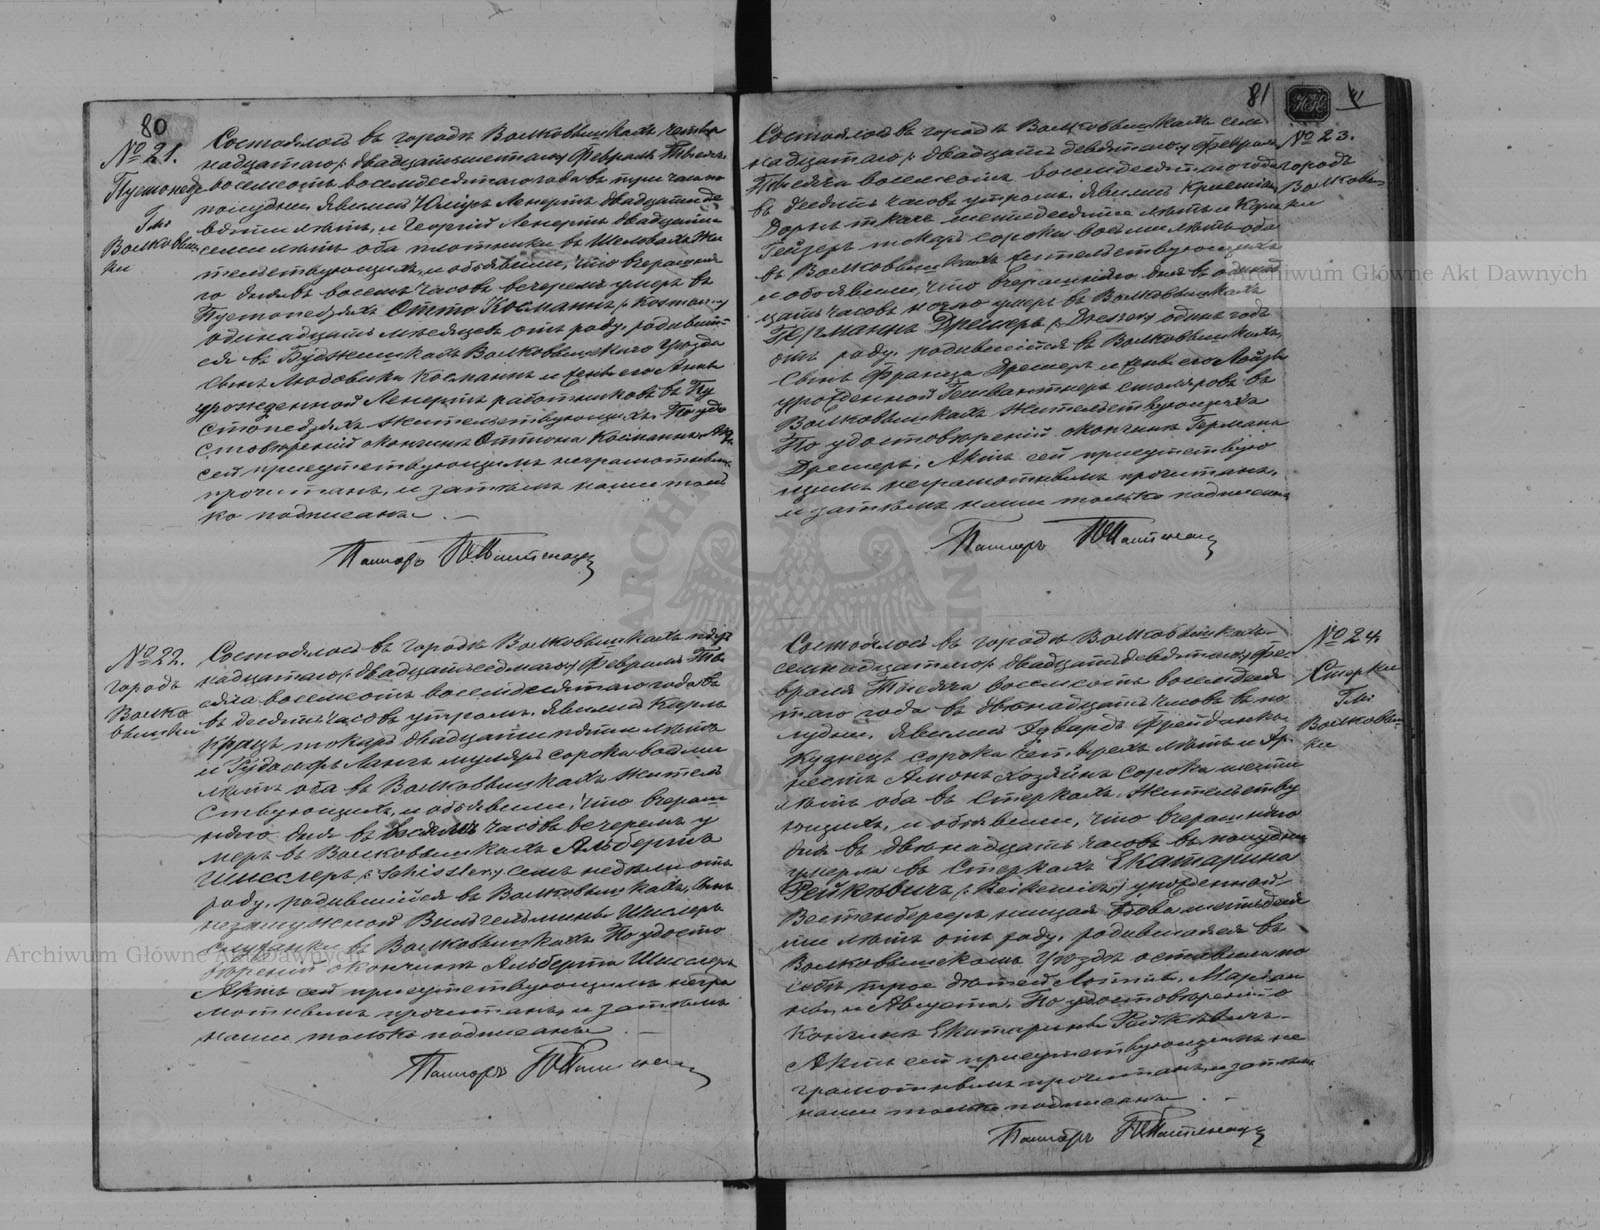 80
№ 21.
Пустопедзи
Гм.
Волковышки
Состоялось въ городѣ Волковышкахъ четыр
надцатаго /: двадцать шестаго :/ Февраля Тысяча
восемьсотъ восемдесятаго года въ три часа по
полудни. Явились Юліусъ Ленертъ двадцати де
вяти лѣтъ, и Георгій Ленертъ двадцати
семи лѣтъ оба плотники въ Шелвахъ Жи
тельствующихъ, и объявили, что вчерашня
го дня въ восемь часовъ вечеромъ умеръ въ
Пустопедзяхъ Отто Косманнъ /: Kosman :/
одинадцать мѣсяцевъ отъ роду, родившій
ся въ Будвишкахъ Волковышскаго Уѣзда
Сынъ Людовика Косманнъ и жены его Анны
урожденной Ленертъ работниковъ въ Пу
стопедзяхъ жительствующихъ. По удо
стовѣреніи окончинѣ Оттона Косманнъ, Актъ
сей присутствующимъ неграмотнымъ
прочитанъ, и затѣмъ нами толь
ко подписанъ. —
Пасторъ
№ 22.
городъ
Волко
вышки
Состоялось въ городѣ Волковышкахъ пят
надцатаго /: двадцать седмаго :/ Февраля Ты
сяча восемьсотъ восемдесятаго года въ
въ десять часовъ утромъ. Явились Карлъ
токарь двадцати пяти лѣтъ
и Рудольфъ Лангъ муляръ сорока восьми
лѣтъ оба въ Волковышкахъ жител
ствующихъ, и объявили, что вчераш
няго дня въ восемь часовъ вечеромъ у
меръ въ Волковышкахъ Альбертъ
Шисслеръ /: Schissler :/ семь недѣли отъ
роду, родившійся въ Волковышкахъ, Сынъ
незамужной Вильгельмины Шислеръ
служанки въ Волковышкахъ. По удосто
вѣреніи окончинѣ Альберта Шисслеръ
Актъ сей присутствующимъ негра
мотнымъ прочитанъ, и затѣмъ
нами только подписанъ. —
Пасторъ
81
№ 23.
городъ
Волковыш
ки
Состоялось въ городѣ Волковышкахъ сем
надцатаго /: двадцать девятаго :/ Февраля
Тысяча восемьсотъ восемдесятаго года
въ десять часовъ утромъ. Явились Христіанъ
Дорнъ ткачъ шестидесяти лѣтъ и Карлъ
Гейзеръ токарь сорока восьми лѣтъ оба
въ Волковышкахъ жительствующихъ
и объявили, что вчерашняго дня въ одинад
цать часовъ ночью умеръ въ Волковышкахъ
Германнъ Дрешеръ /: Drescher :/ одинъ годъ
отъ роду, родившійся въ Волковышкахъ,
Сынъ Франца Дрешеръ и жены его Лойзы
урожденной столяровъ въ
Волковышкахъ жительствующихъ
По удостовѣреніи окончинѣ Германа
Дрешеръ, Актъ сей присутствую
щимъ неграмотнымъ прочитанъ,
и затѣмъ нами только подписанъ
Пасторъ
№ 24
Стерки
Гм.
Волковыш
ки
Состоялось въ городѣ Волковышкахъ
семнадцатаго /: двадцать девятаго :/ Фе
враля Тысяча восемьсотъ восемдеся
таго года въ двѣнадцать часовъ въ по
лудни. Явились Эдвардъ Фрейданкъ
кузнецъ сорока четырехъ лѣтъ и Эр
нестъ Амонъ хозяинъ сорока шести
лѣтъ оба въ Стеркахъ жительству
ющихъ, и объявили, что вчерашняго
дня въ двѣнадцать часовъ въ полудни
умерла въ Стеркахъ Екатарина
Рейкѣвичъ урожденной
Вестенбергеръ нищая вдова шестьдеся
ти лѣтъ отъ роду, родившаяся въ
Волковышскомъ Уѣздѣ оставила по
себѣ трое дѣтей и Августа. По удостовѣреніи о
кончинѣ Екатарины Рейкѣвичъ
Актъ сей присутствующимъ не
грамотнымъ прочитанъ, и затѣмъ
нами только подписанъ. —
Пасторъ
Archiwum Główne Akt Dawnych
Archiwum Główne Akt Dawnych